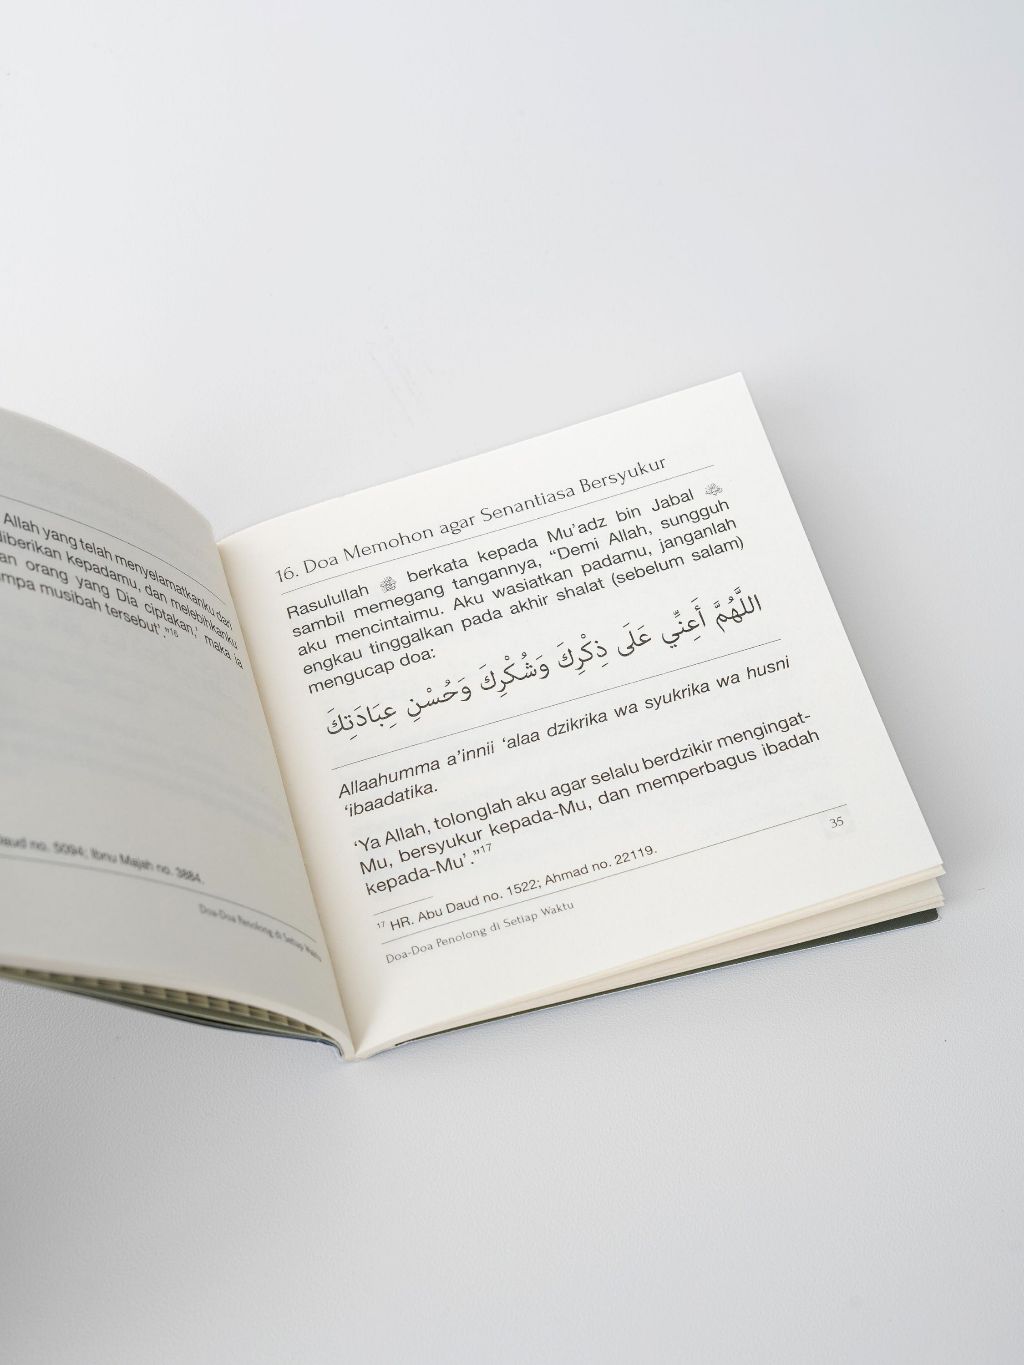 Allah yang telah menyelamatkanku dan
diberikan kepadamu, dan melebihkanku
orang yang Dia ciptakan,' maka ia
musibah tersebut'."16
no. 5094; Ibnu Majah no. 3884.
Doa-Doa Penolong di Setiap Waktu
16. Doa Memohon agar Senantiasa Bersyukur
Rasulullah ﷺ berkata kepada Mu'adz bin Jabal
sambil memegang tangannya, "Demi Allah, sungguh
aku mencintaimu. Aku wasiatkan padamu, janganlah
engkau tinggalkan pada akhir shalat (sebelum salam)
mengucap doa:
اللَّهُمَّ أَعِنِّي عَلَى ذِكْرِكَ وَشُكْرِكَ وَحُسْنِ عِبَادَتِكَ
Allaahumma a'innii 'alaa dzikrika wa syukrika wa husni
'ibaadatika.
'Ya Allah, tolonglah aku agar selalu berdzikir mengingat-
Mu, bersyukur kepada-Mu, dan memperbagus ibadah
kepada-Mu'."17
17 HR. Abu Daud no. 1522; Ahmad no. 22119.
Doa-Doa Penolong di Setiap Waktu
35